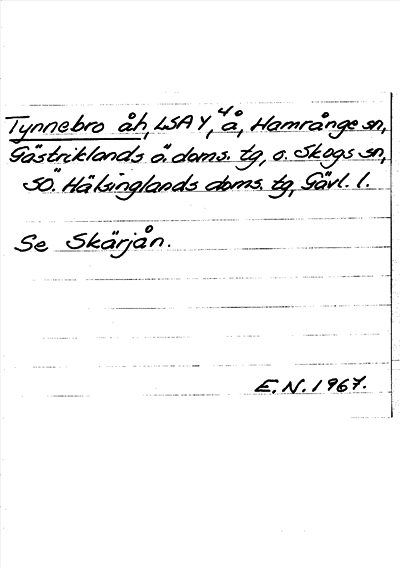 Tynnebro åh, LSA Y, 4 å, Hamrånge sn,
Gästriklands ö. doms. tg, o. Skogs sn,
SÖ. Hälsinglands doms. tg, Gävl. l.
Se Skärjån.
E.N. 1967.